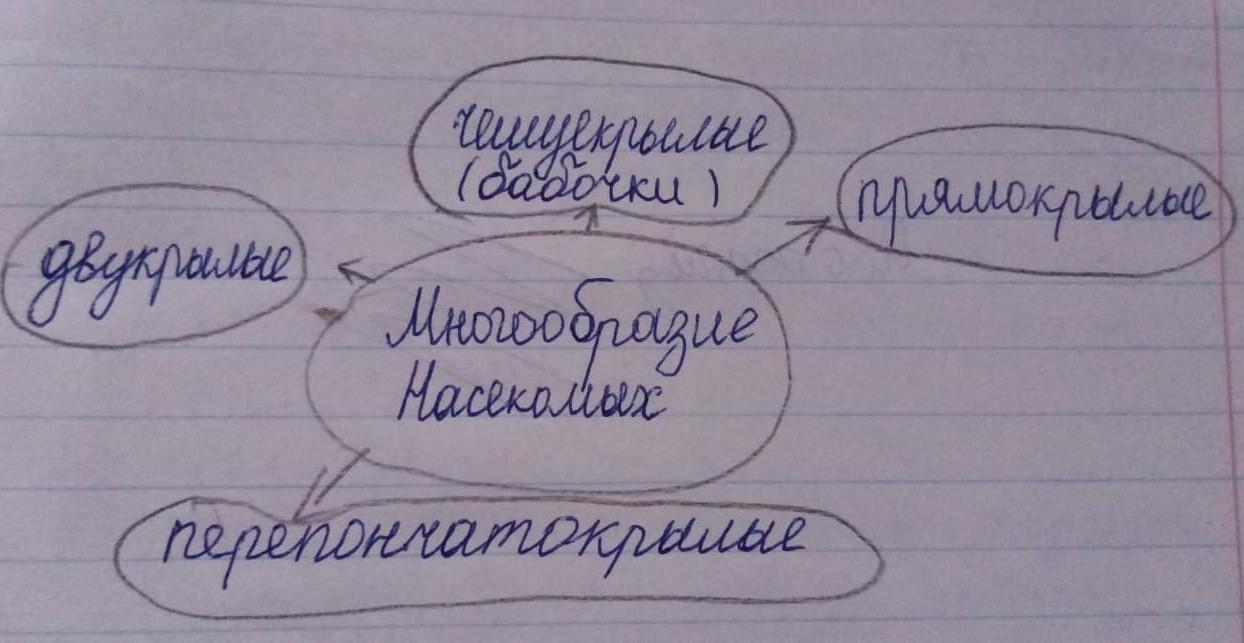 чешуекрылые
(бабочки)
прямокрылые
двукрылые
Многообразие
Насекомых
перепончатокрылые